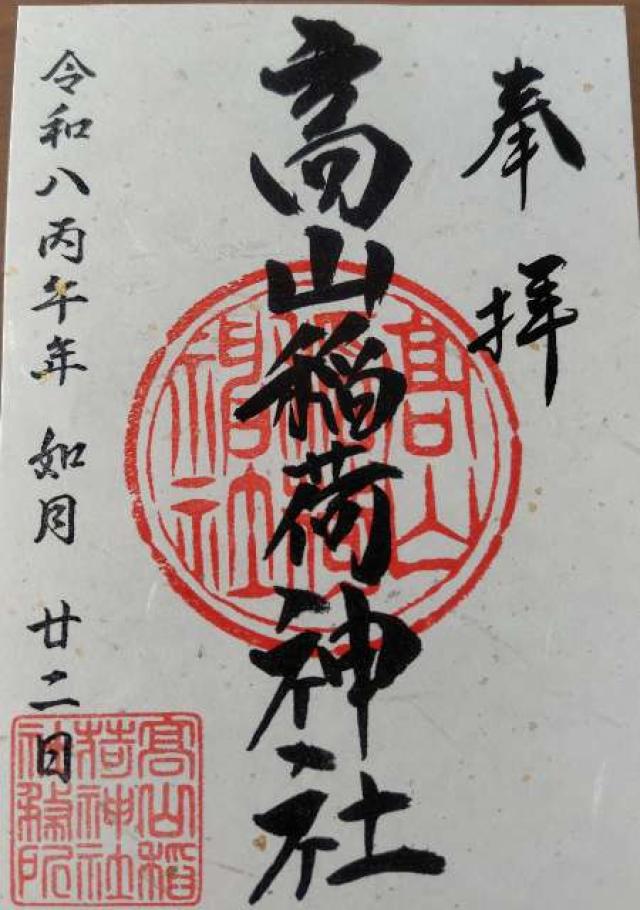 奉拝
高山稲荷神社
高山
稲荷
神社
令和八丙午年 如月 廿二日
高山稲
荷神社
社務所